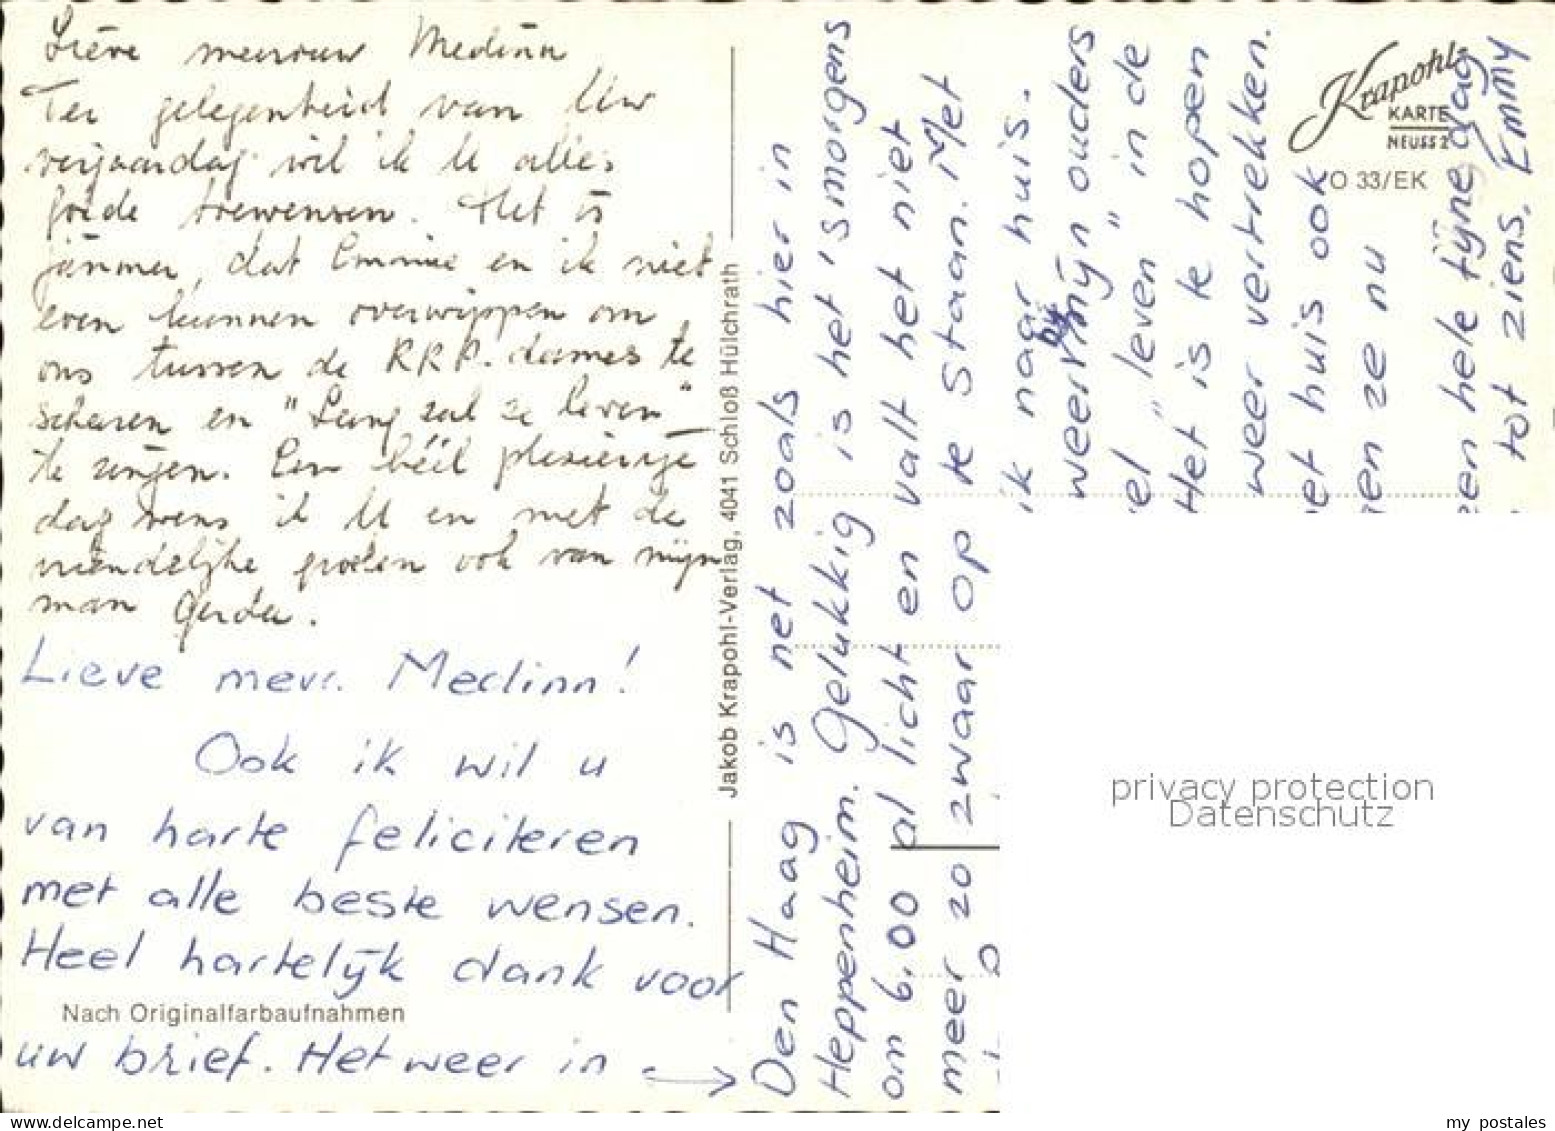 Lieve mevrouw Medinn
Ter gelegenheid van Uw
verjaardag wil ik U alles
goede toewensen. Het is
jammer, dat Emmie en ik niet
even kunnen overwippen om
ons tussen de RKP. dames te
scharen en "Lang zal ze leven"
te zingen. Een héél plezierige
dag wens ik U en met de
vriendelijke groeten ook van mijn
man Gerda.
Lieve mevr. Medinn!
Ook ik wil u
van harte feliciteren
met alle beste wensen.
Heel hartelijk dank voor
Nach Originalfarbaufnahmen
uw brief. Het weer in →
Jakob Krapohl-Verlag, 4041 Schloß Hülchrath
Den Haag is net zoals hier in
Heppenheim. Gelukkig is het 's morgens
om 6.00 al licht en valt het niet
meer zo zwaar op te staan. Met
ik naar huis.
weer mijn ouders
"leven" in de
Het is te hopen
weer vertrekken.
et huis ook
en ze nu
een hele fijne dag
tot ziens, Emmy
Krapohl-
KARTE
NEUSS 2
O 33/EK
privacy protection
Datenschutz
www.delcampe.net
my postales